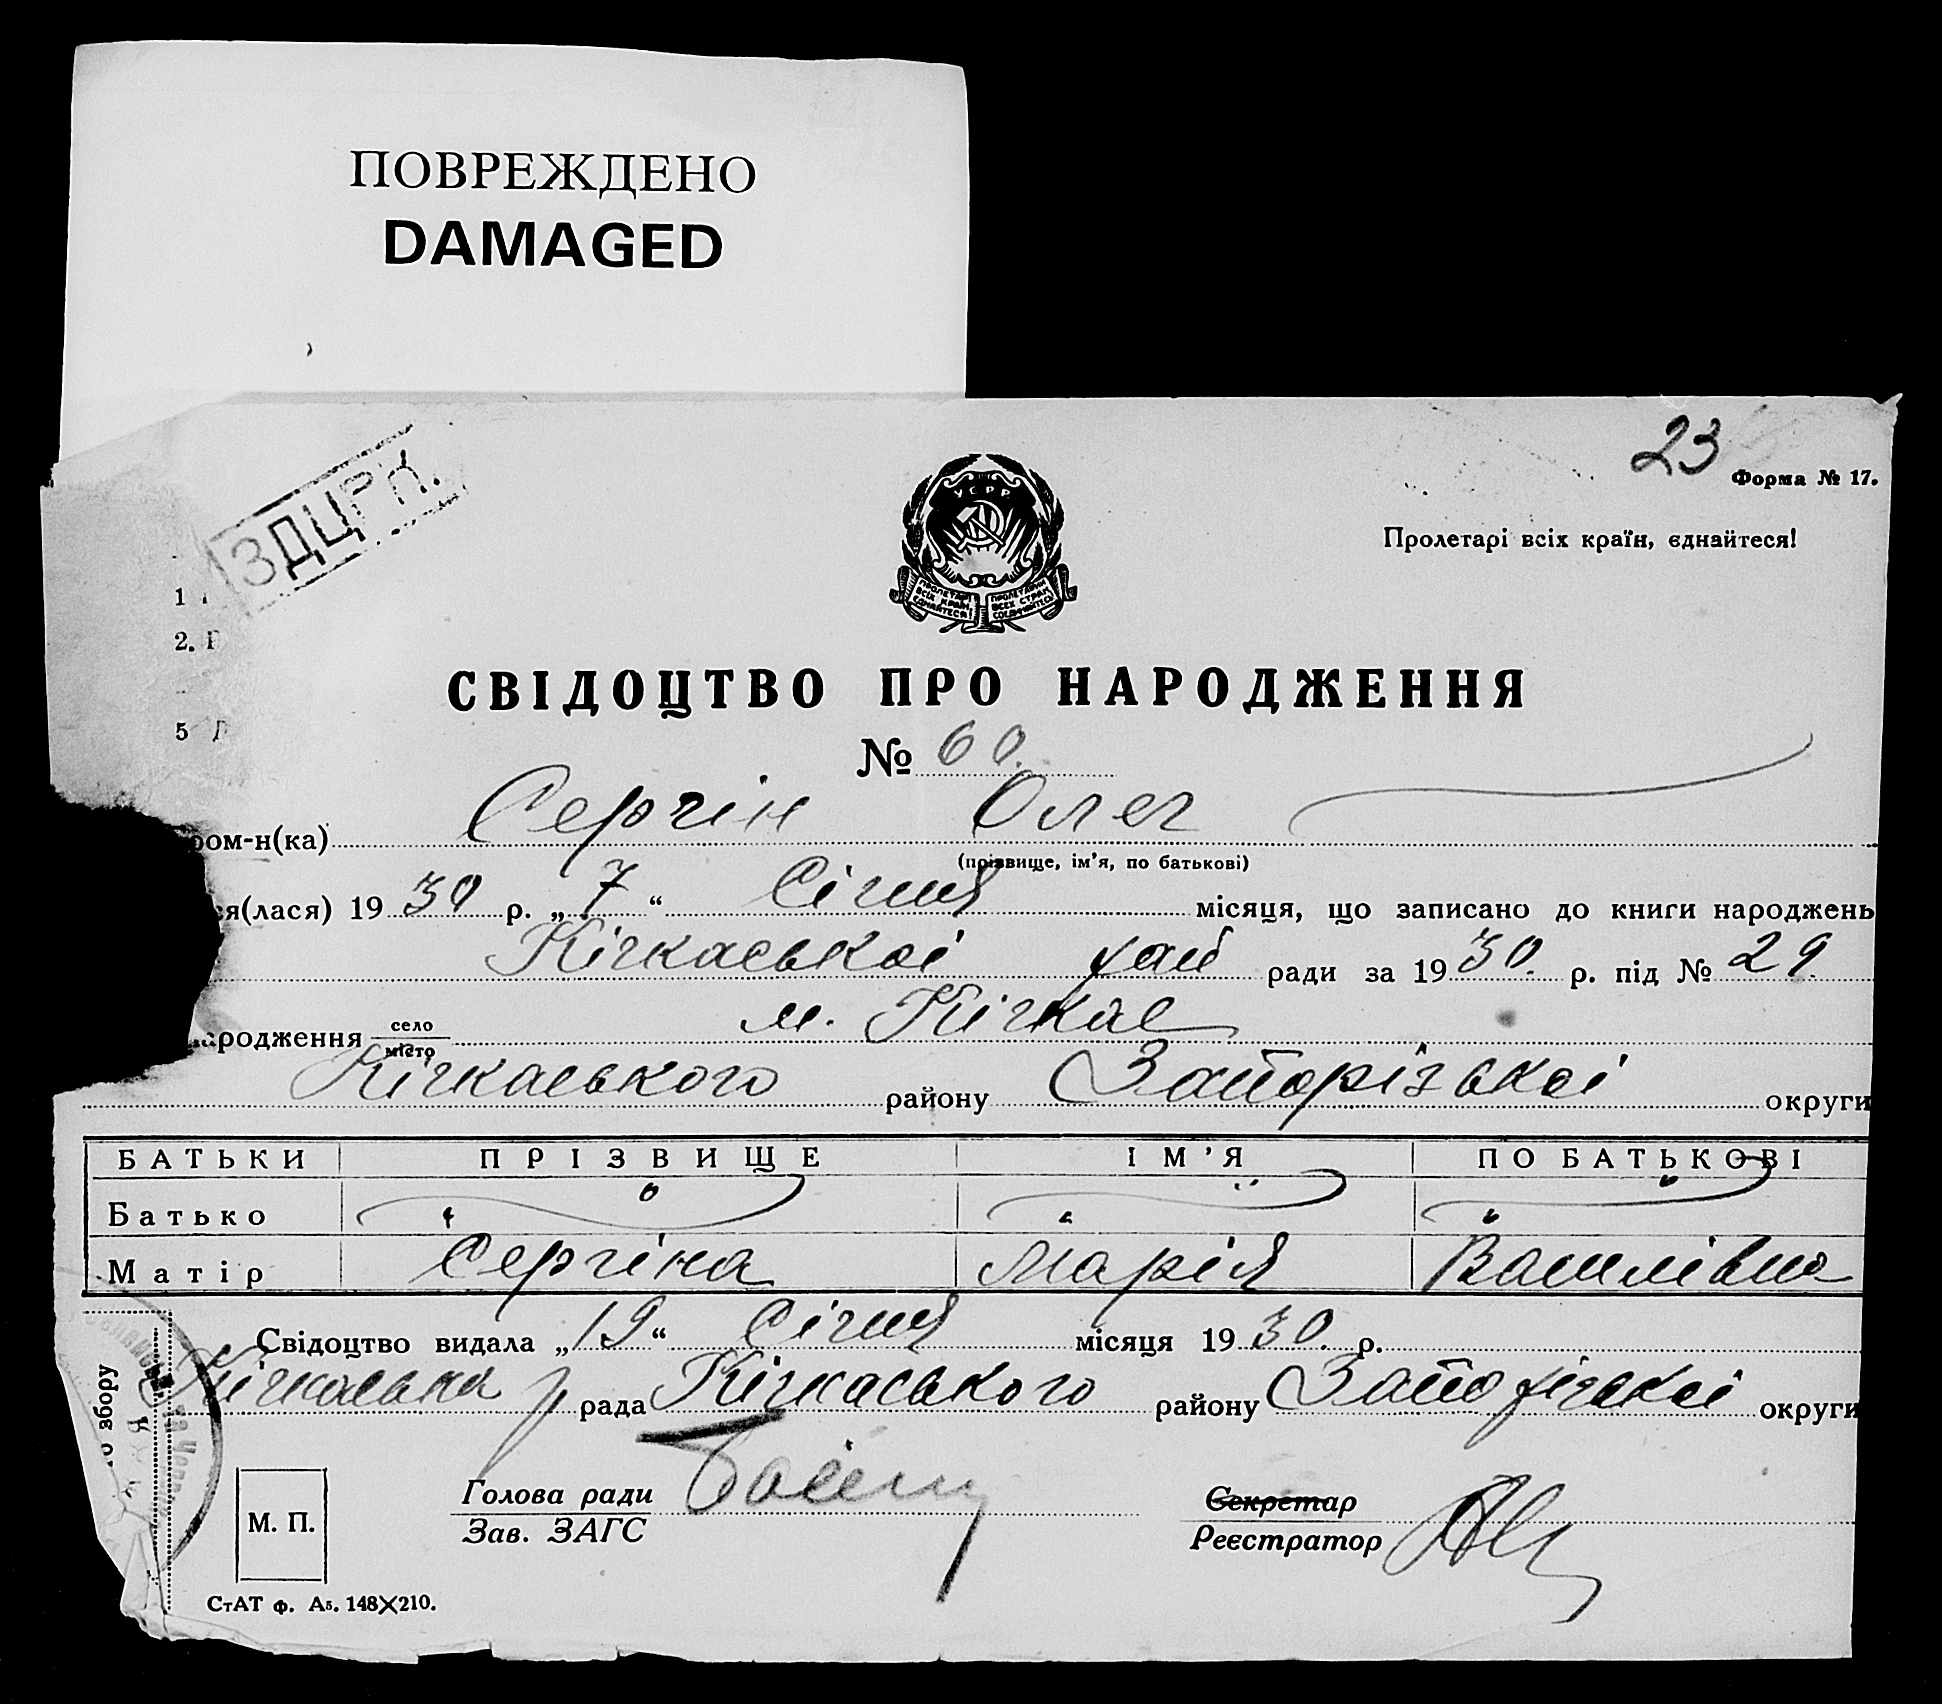 ПОВРЕЖДЕНО
DAMAGED
ЗДЦРК.
23
Форма № 17.
Пролетарі всіх країн, єднайтеся!
УСРР
ПРОЛЕТАРІ ВСІХ КРАЇН, ЄДНАЙТЕСЯ!
ПРОЛЕТАРИИ ВСЕХ СТРАН СОЕДИНЯЙТЕСЬ
1
2. Г
5
СВІДОЦТВО ПРО НАРОДЖЕННЯ
№ 60.
ром-н(ка) Сергін Олег
(прізвище, ім'я, по батькові)
ся(лася) 1930 р. „7“ Січня місяця, що записано до книги народжень
Кічкаської рай ради за 1930. р. під № 29.
ародження село м. Кічкас
місто
Кічкаського району Запорізької округи
БАТЬКИ ПРІЗВИЩЕ ІМ'Я ПО БАТЬКОВІ
Батько
Матір Сергіна Марія Василівна
Свідоцтво видала „19“ Січня місяця 1930. р.
Кічкаська р рада Кічкаського району Запорізької округи
о збору
М. П.
Голова ради
Зав. ЗАГС
Секретар
Реєстратор
СтАТ ф. А5. 148×210.